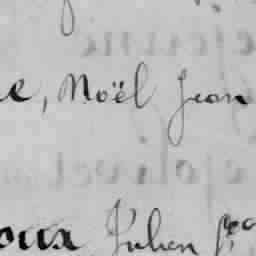 e, Noël Jean
oux Julien